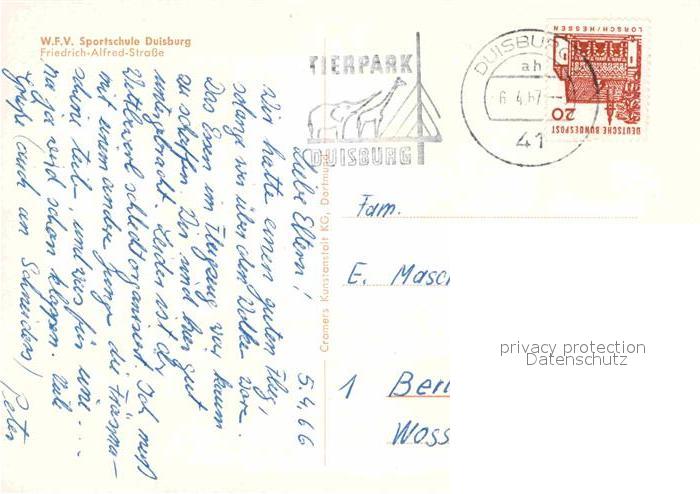 W.F.V. Sportschule Duisburg
Friedrich-Alfred-Straße
TIERPARK
DUISBURG
DUISBURG
ah
-6.4.67-
41
LORSCH/HESSEN
20
DEUTSCHE BUNDESPOST
Cramers Kunstanstalt KG, Dortmund
5.4.66
Liebe Eltern!
Wir hatte einen guten Flug,
solange wir über den Wolken ware.
Das Essen im Flugzeug war kaum
zu schaffen. Wir sind hier gut
untergebracht. Leider ist der
Wettbewerb schlecht organisiert. Ich muß
mit einem andere Junge die
schine teile, und was für eine ...
na ja wird schon klappen. Viele
Grüße (auch an Schneiders) Peter
Fam.
E. Masch
1 Berl
Woss
privacy protection
Datenschutz